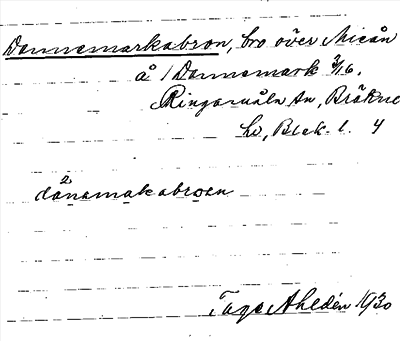 Dannemarkabron, bro över Mieån
å / Dannemark 3/16.
Ringamåla sn, Bräkne
hd, Blek. l. 4
dånamakabroen
Tage Ahldén 1930